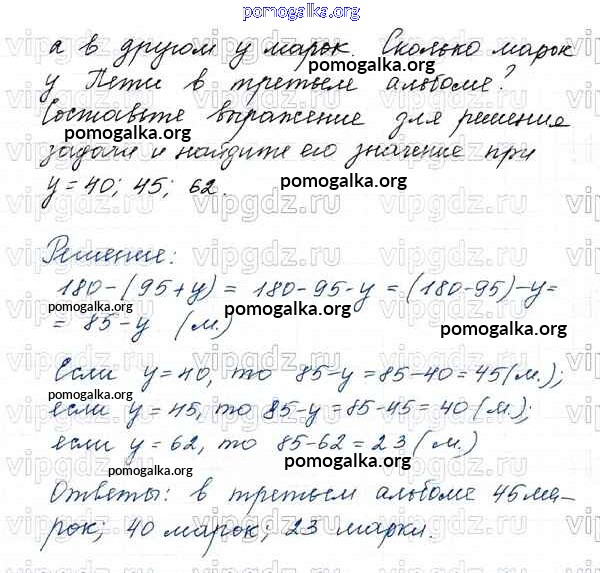 pomogalka.org
а в другом y марок. Сколько марок
pomogalka.org
у Пети в третьем альбоме?
Составьте выражение для решения
pomogalka.org
задачи и найдите его значение при
y = 40; 45; 62.
pomogalka.org
vipgdz.ru
Решение:
180-(95+y) = 180-95-y = (180-95)-y=
pomogalka.org
pomogalka.org
= 85-y (м.)
pomogalka.org
Если y=40, то 85-y=85-40=45(м.);
pomogalka.org
если y=45, то 85-y=85-45=40(м.);
если y=62, то 85-62=23(м.)
pomogalka.org
pomogalka.org
Ответы: в третьем альбоме 45 ма-
рок; 40 марок; 23 марки.
pomogalka.org